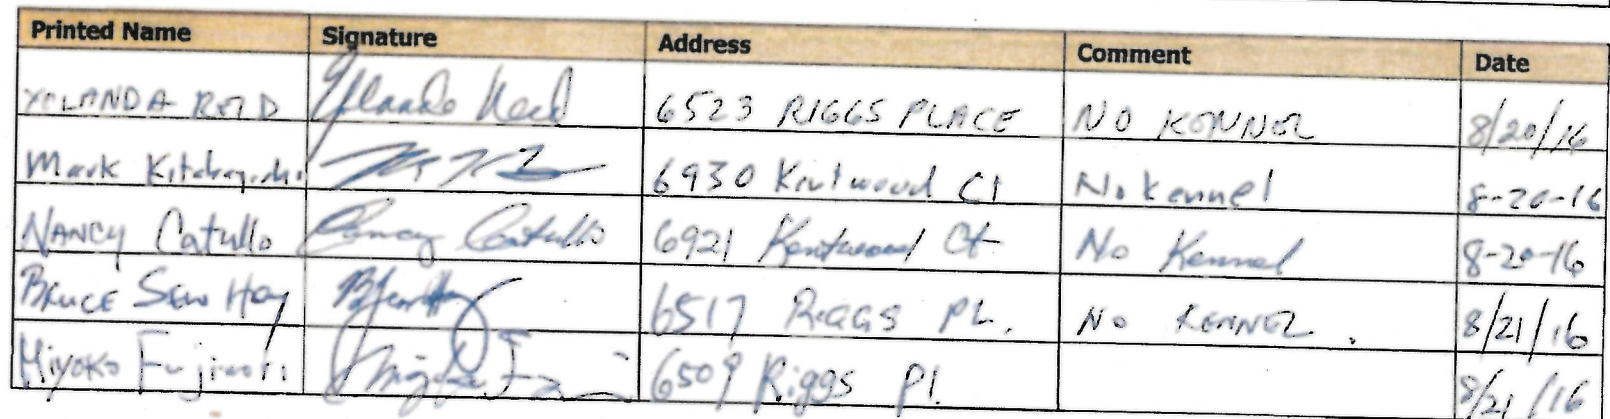 Printed Name Signature Address Comment Date
YOLANDA REID Yolanda Reid 6523 RIGGS PLACE NO KENNEL 8/20/16
Mark 6930 Kentwood Ct No kennel 8-20-16
NANCY Catullo Nancy Catullo 6921 Kentwood Ct No Kennel 8-20-16
BRUCE SEW HOY 6517 RIGGS PL. NO KENNEL. 8/21/16
Miyoko Fujimori 6509 Riggs Pl. 8/21/16